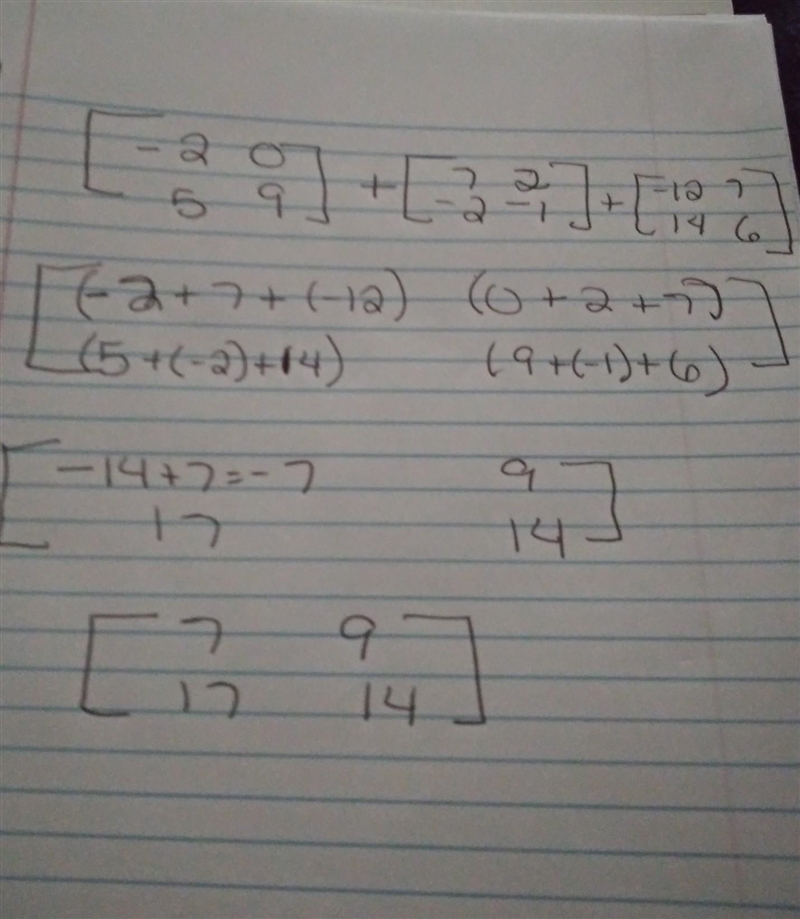 [-2 0] + [7 2] + [-12 7]
[5 9] [-2 -1] [14 6]
[(-2+7+(-12) (0+2+7)]
[(5+(-2)+14) (9+(-1)+6)]
[-14+7=-7 9]
[17 14]
[7 9]
[17 14]